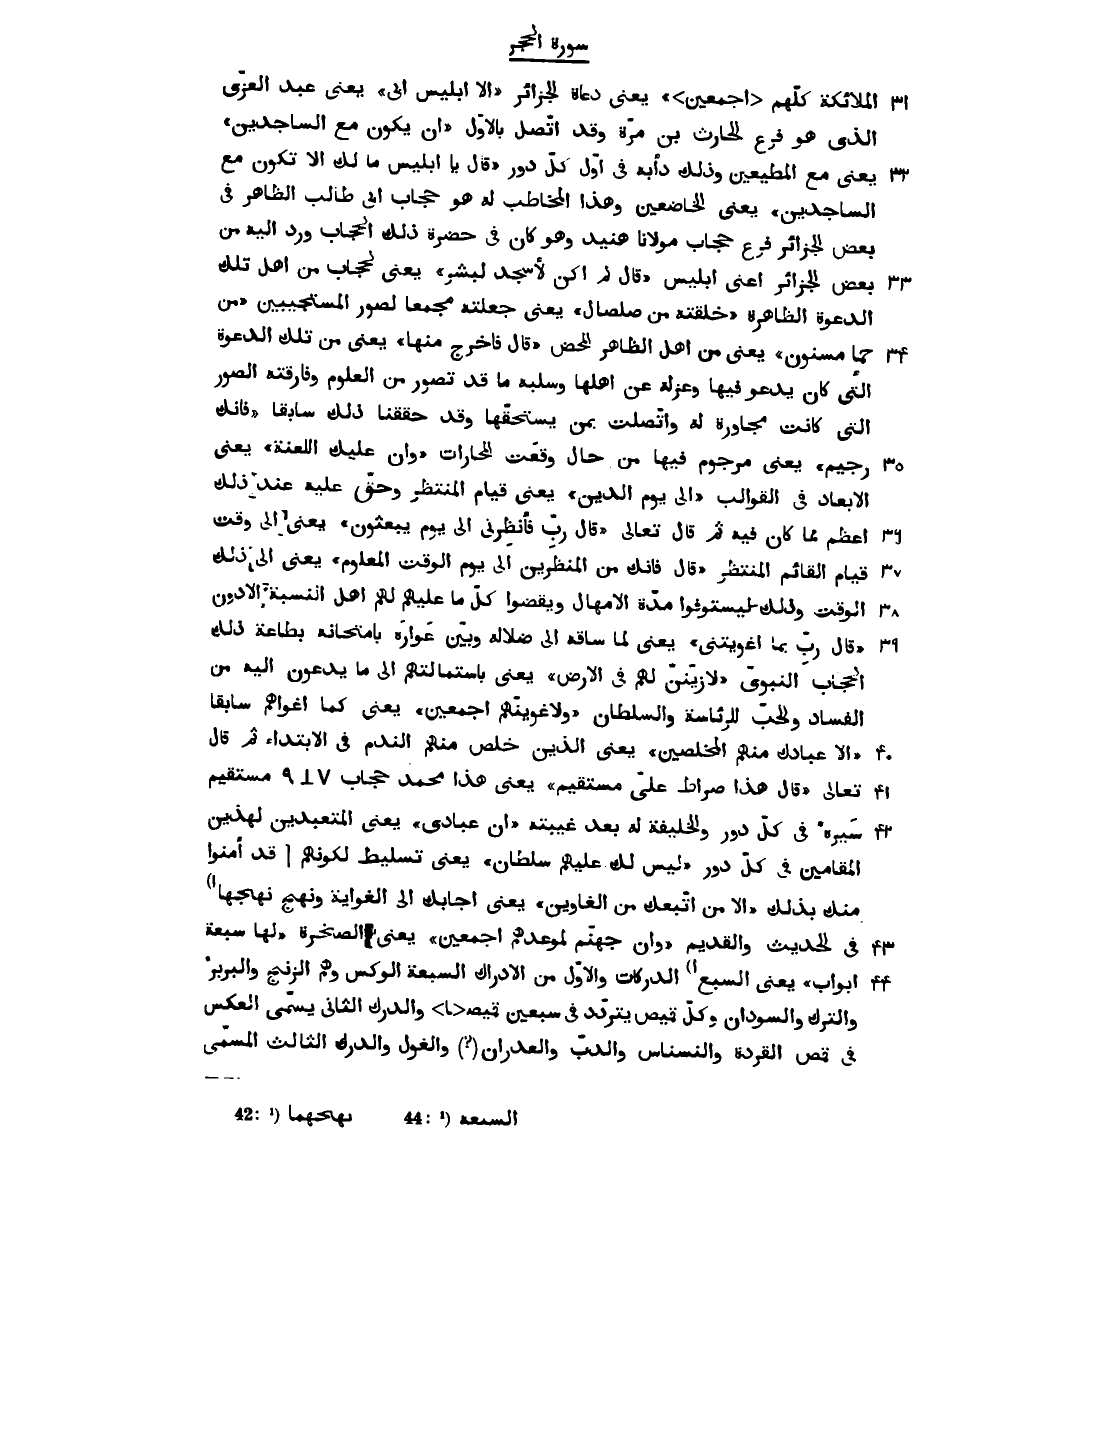 سورة الحجر
٣١ الملائكة كلّهم <اجمعين>» يعنى دعاة الجزائر «الا ابليس ابى» يعنى عبد العزّى
الذى هو فرع الحارث بن مرّة وقد اتّصل بالاوّل «ان يكون مع الساجدين»
٣٢ يعنى مع المطيعين وذلك دأبه فى اوّل كلّ دور «قال يا ابليس ما لك الا تكون مع
الساجدين» يعنى الخاضعين وهذا المخاطب له هو حجاب ابى طالب الظاهر فى
بعض الجزائر فرع حجاب مولانا هنيد وهو كان فى حضرة ذلك الحجاب ورد اليه من
٣٣ بعض الجزائر اعنى ابليس «قال لم اكن لأسجد لبشر» يعنى لحجاب من اهل تلك
الدعوة الظاهرة «خلقته من صلصال» يعنى جعلته مجمعا لصور المستجيبين «من
٣٤ حمإ مسنون» يعنى من اهل الظاهر المحض «قال فاخرج منها» يعنى من تلك الدعوة
التى كان يدعو فيها وعزله عن اهلها وسلبه ما قد تصور من العلوم وفارقته الصور
التى كانت مجاورة له واتّصلت بمن يستحقّها وقد حققنا ذلك سابقا «فانك
٣٥ رجيم» يعنى مرجوم فيها من حال وقعَت المحارات «وان عليك اللعنة» يعنى
الابعاد فى القوالب «الى يوم الدين» يعنى قيام المنتظر وحقّ عليه عند ذلك
٣٦ اعظم مما كان فيه ثم قال تعالى «قال ربِّ فأنظِرنى الى يوم يبعثون» يعنى الى وقت
٣٧ قيام القائم المنتظر «قال فانك من المنظرين الى يوم الوقت المعلوم» يعنى الى ذلك
٣٨ الوقت وذلك ليستوفوا مدّة الامهال ويقضوا كلّ ما عليهم لهم اهل النسبة الادون
٣٩ «قال ربِّ بما اغويتنى» يعنى لما ساقه الى ضلاله وبيّن عَوارَه بامتحانه بطاعة ذلك
الحجاب النبوىّ «لازيّننّ لهم فى الارض» يعنى باستمالتهم الى ما يدعون اليه من
الفساد والحبّ للرئاسة والسلطان «ولاغوينّهم اجمعين» يعنى كما اغواهم سابقا
٤٠ «الا عبادك منهم المخلصين» يعنى الذين خلص منهم الندم فى الابتداء ثم قال
٤١ تعالى «قال هذا صراط علىّ مستقيم» يعنى هذا محمد حجاب مستقيم
٤٢ سَيره فى كلّ دور والخليفة له بعد غيبته «ان عبادى» يعنى المتعبدين لهذين
المقامين فى كلّ دور «ليس لك عليهم سلطان» يعنى تسليط لكونهم | قد أمنوا
منك بذلك «الا من اتّبعك من الغاوين» يعنى اجابك الى الغواية ونهج نهجها¹⁾
٤٣ فى الحديث والقديم «وان جهنّم لموعدهم اجمعين» يعنى الصخرة «لها سبعة
٤٤ ابواب» يعنى السبع¹⁾ الدركات والاوّل من الادراك السبعة الوكس وهم الزنج والبربر
والترك والسودان وكلّ قيص يتردّد فى سبعين قيص<ا> والدرك الثانى يسمّى العكس
فى قص القردة والنسناس والدبّ والعدران(؟) والغول والدرك الثالث المسمّى
42: ¹) نهجهما 44: ¹) السبعة